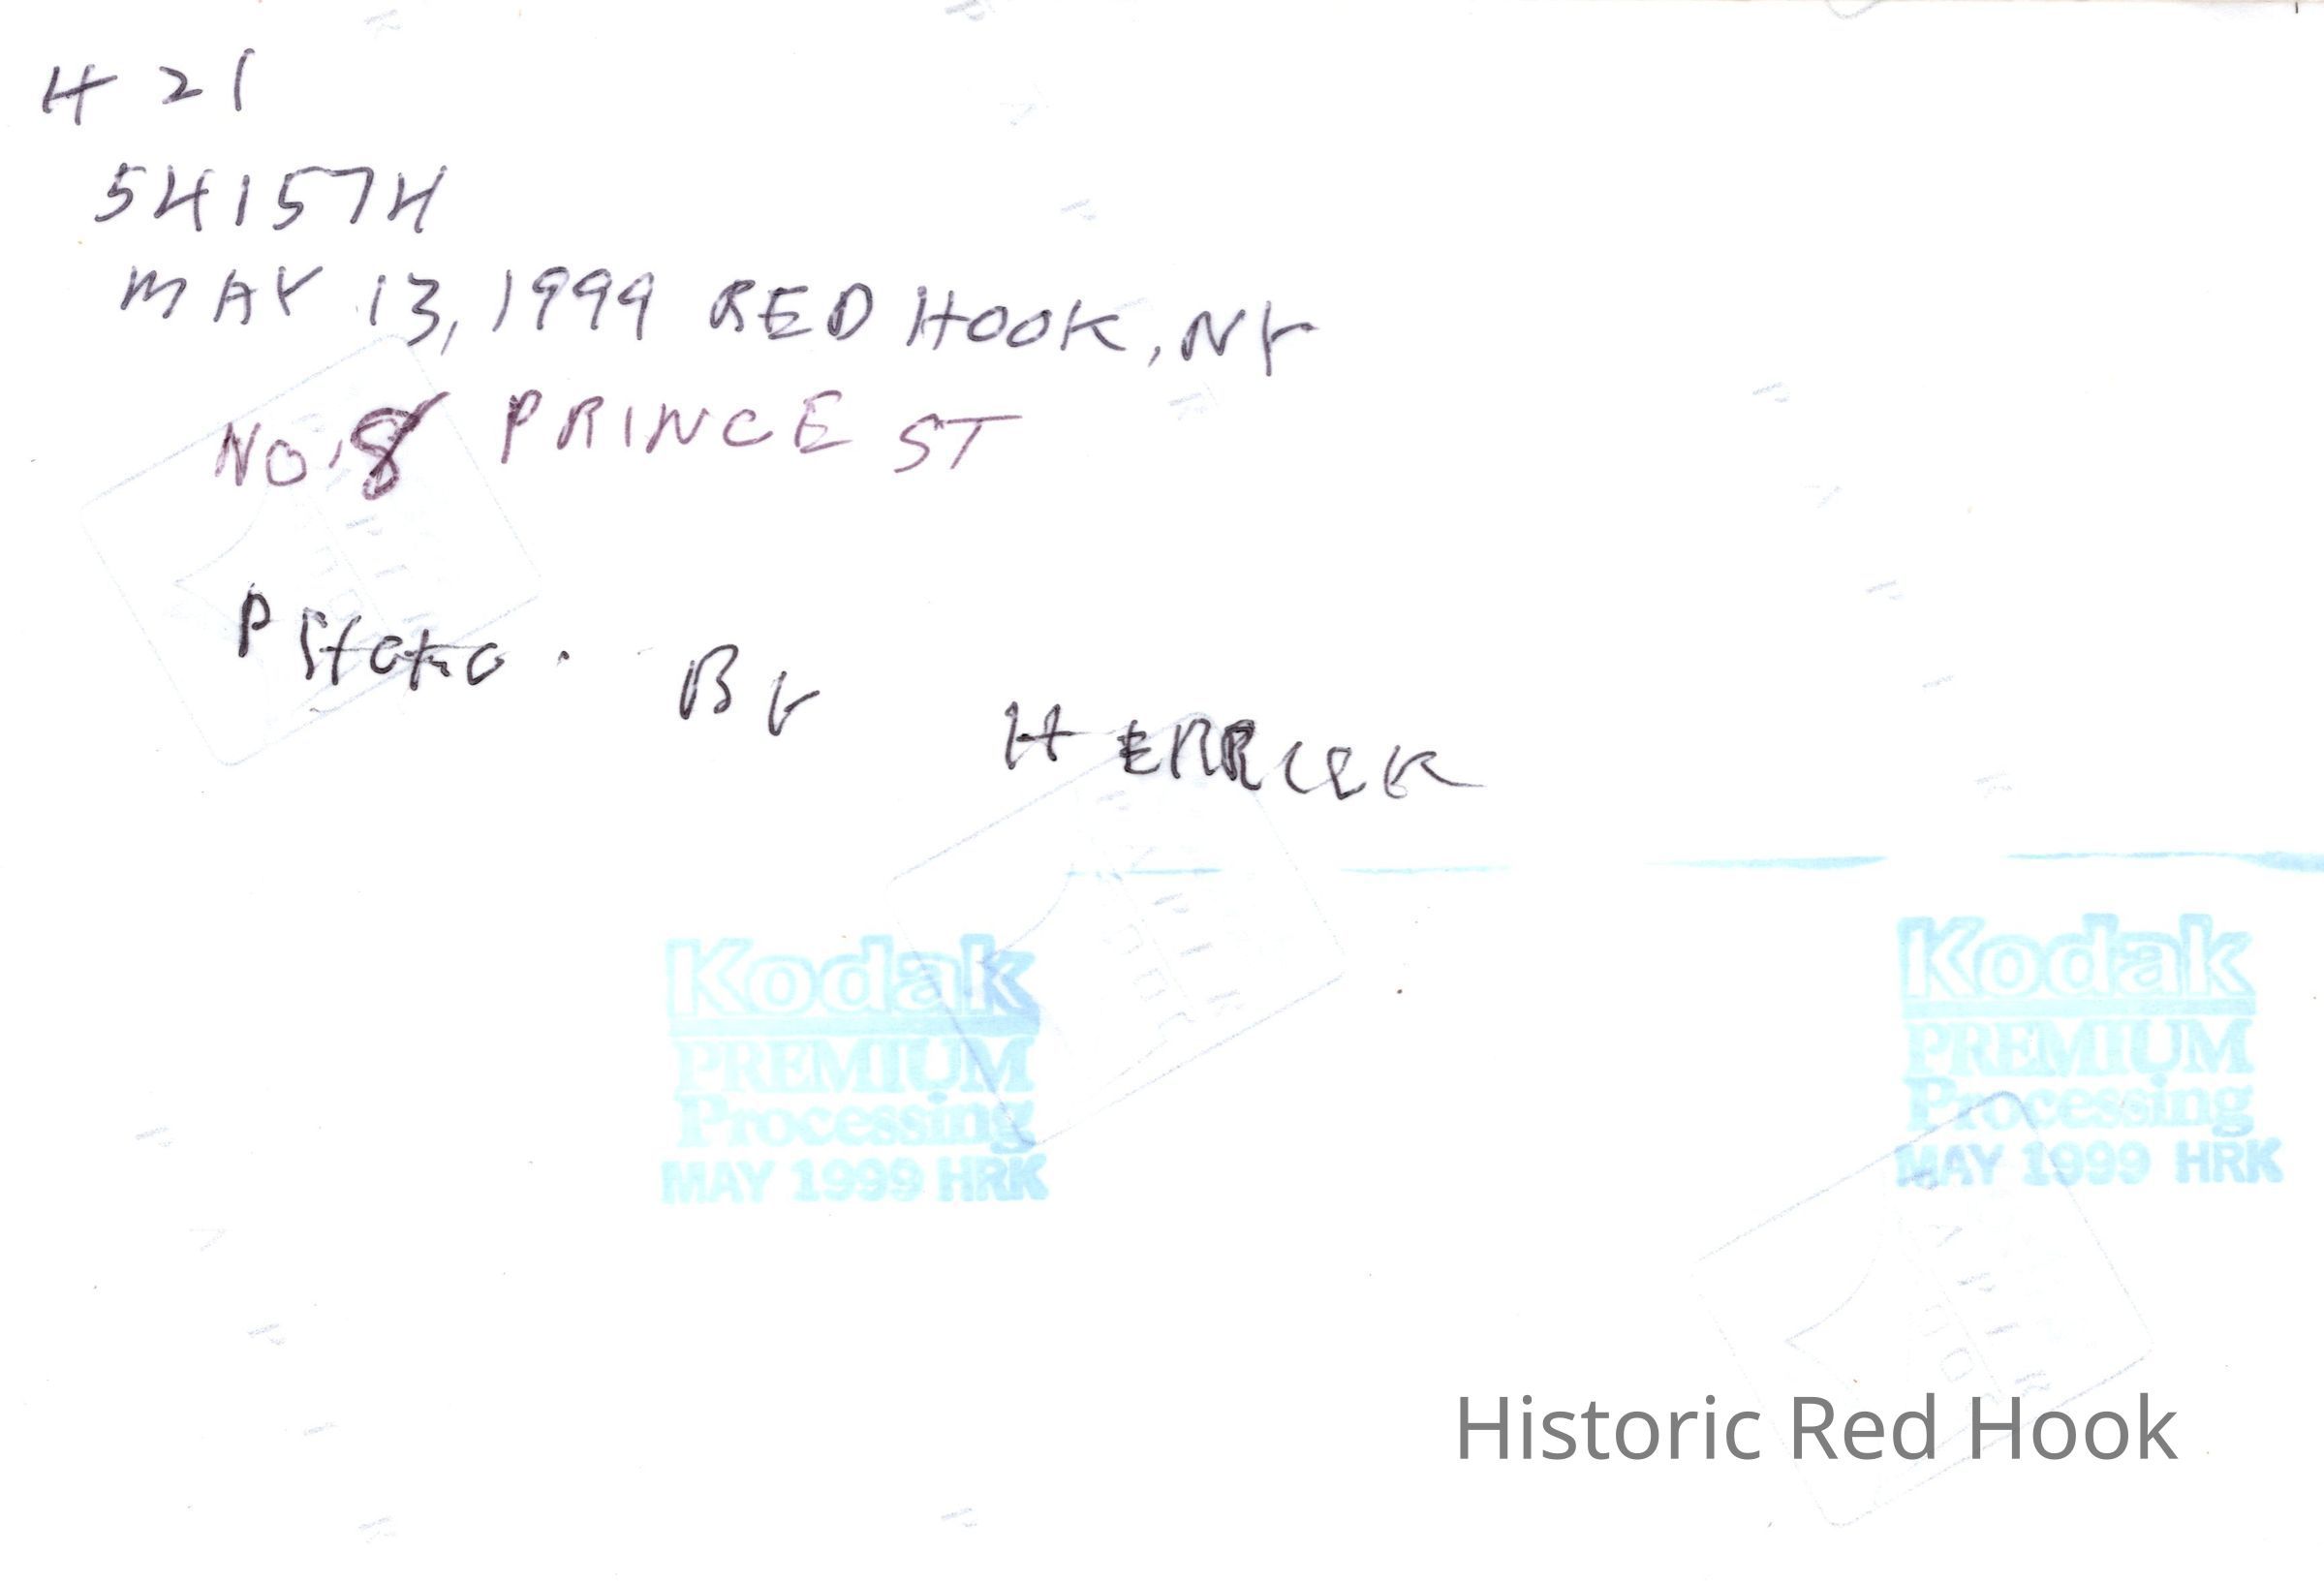 421
541574
MAY 13, 1999 RED HOOK, NY
NO. 8 PRINCE ST
PHOTO. BY HERRICK
Kodak
PREMIUM
Processing
MAY 1999 HRK
Kodak
PREMIUM
Processing
MAY 1999 HRK
Historic Red Hook